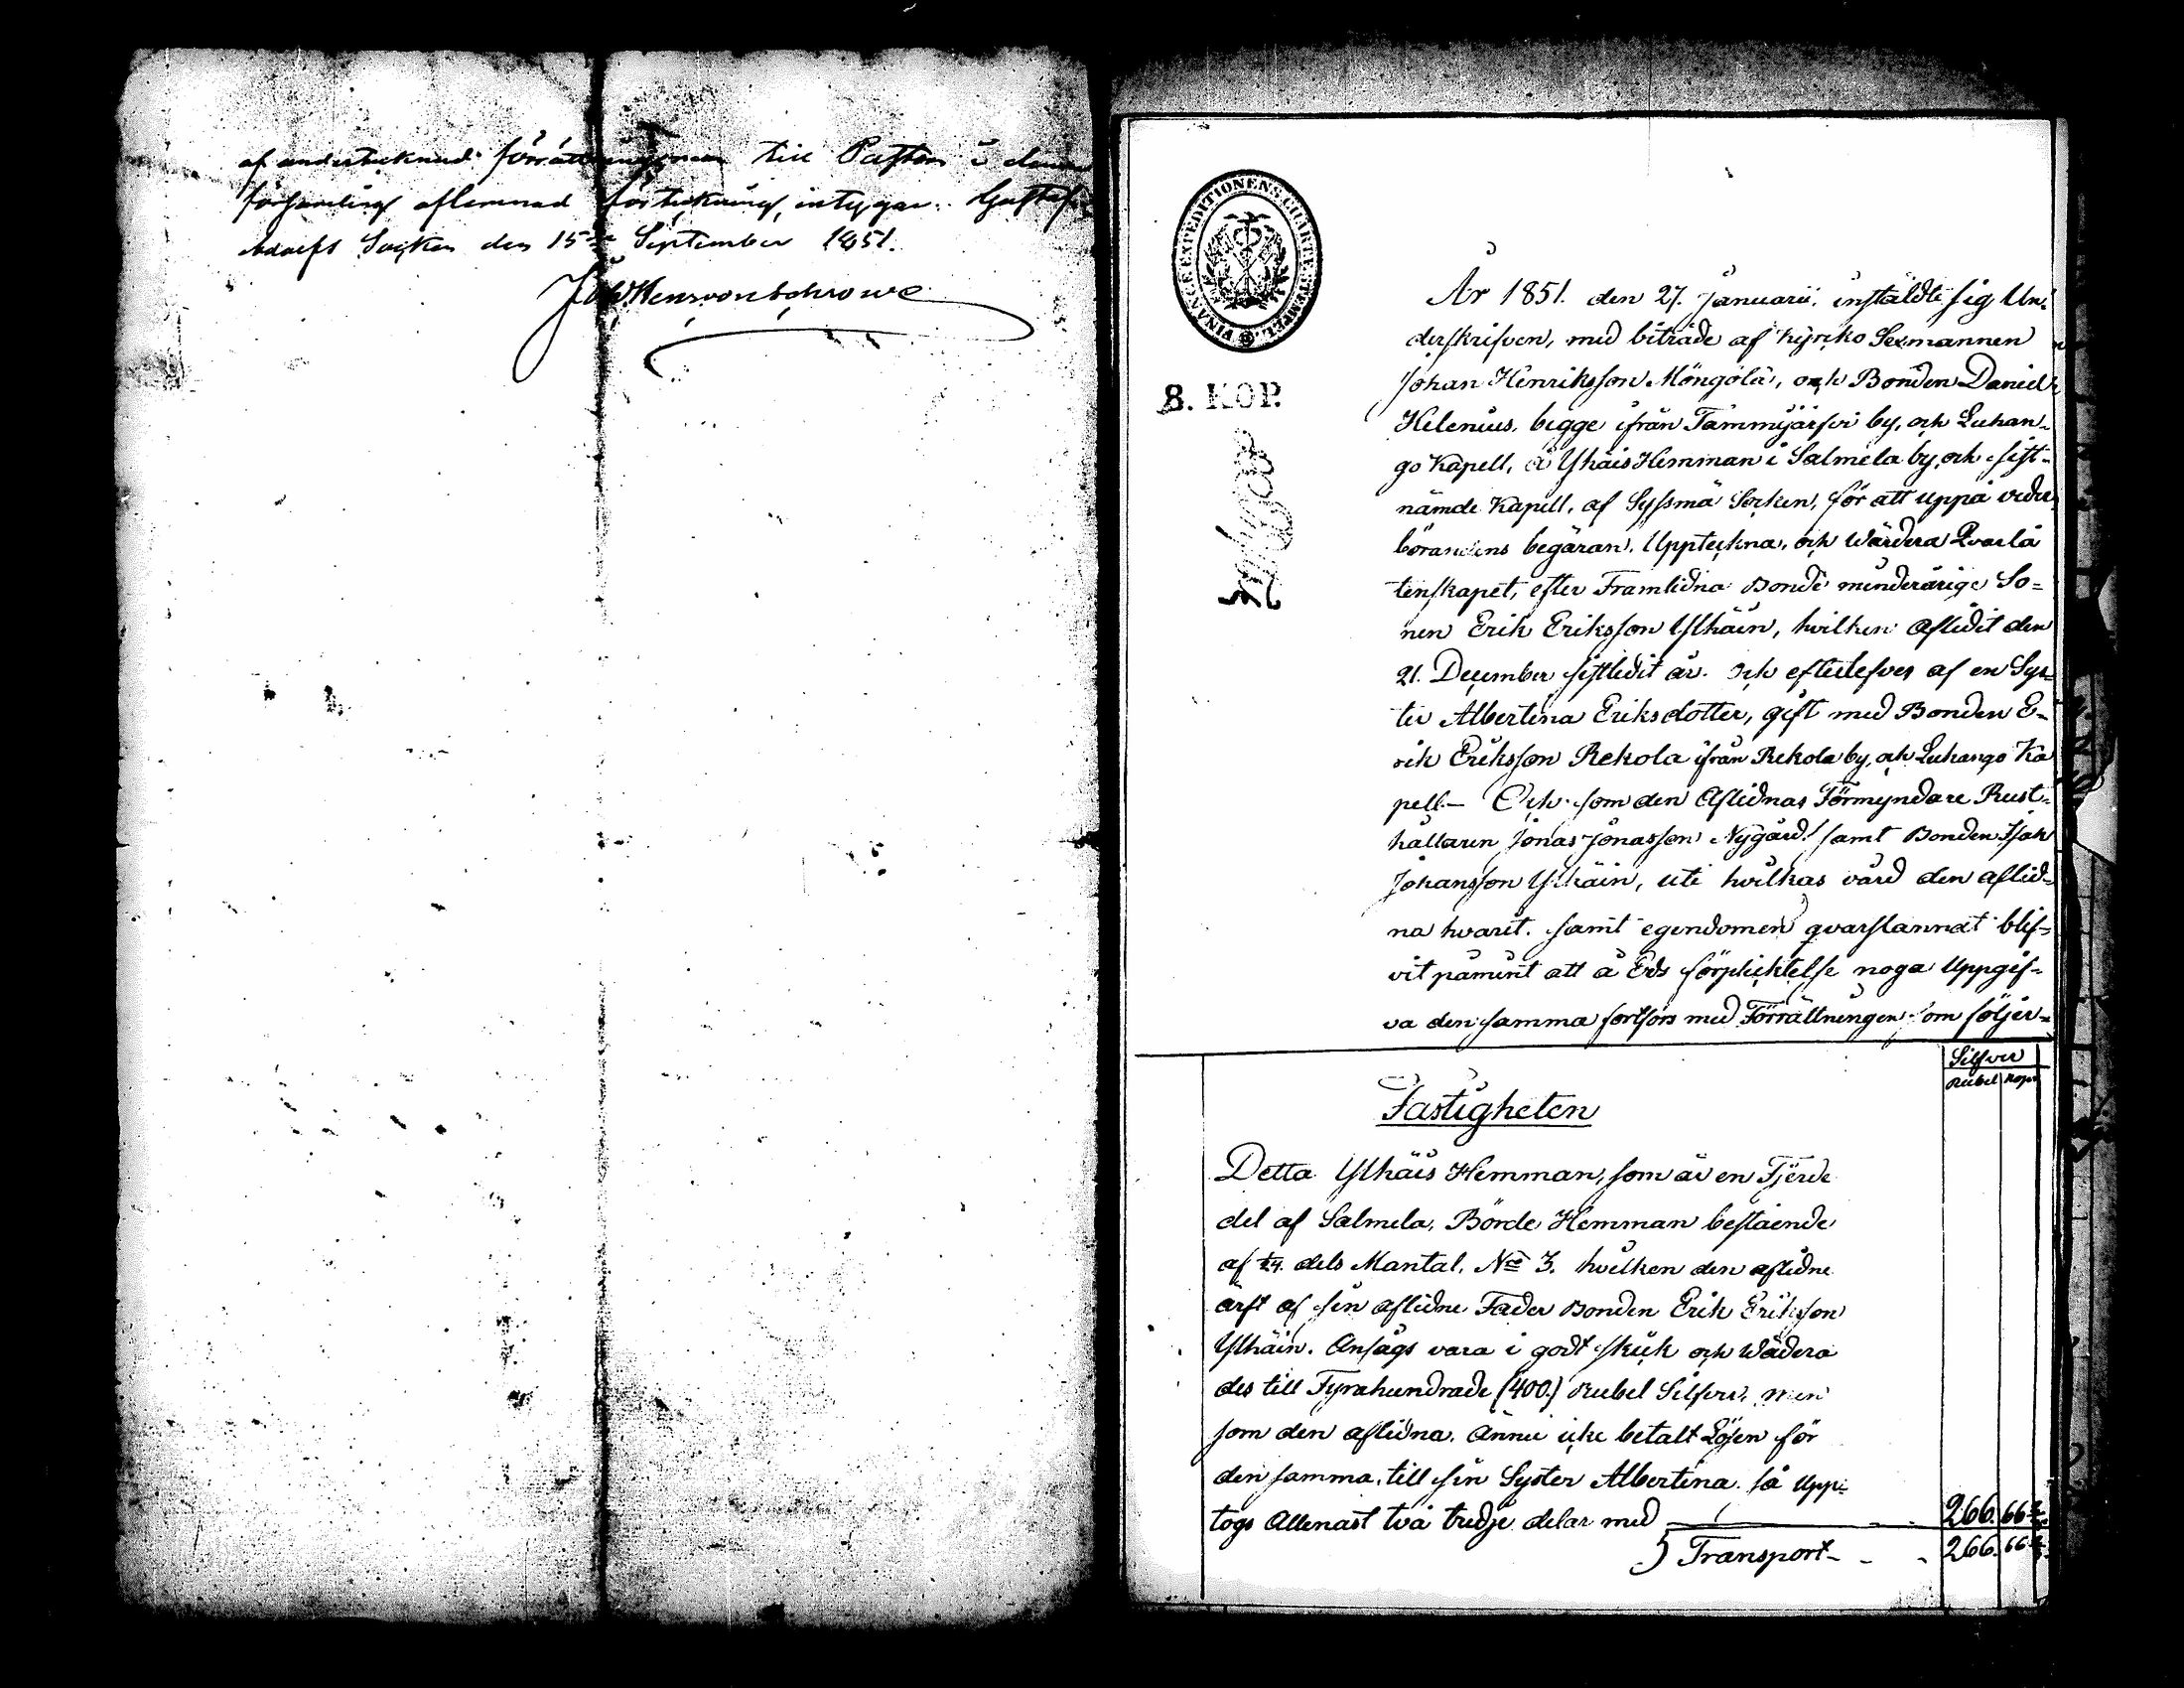 af undertecknad förrättningsman till Pastorn i denna
församling aflemnad förteckning, intygar. Gustaf
Adolfs Socken den 15de September 1851.
FINANCE EXPEDITIONENS CHARTÆ STEMPEL
8. KOP.
År 1851. den 27. Januarii, instäldte sig Un-
derskrifven, med biträde af Kyrko Sexmannen
Johan Henriksson Möngölä, och Bonden Daniel
Helenius, begge ifrån Tammijärfvi by, och Luhan-
go Kapell, å Ylhäis Hemman i Salmela by, och sist-
nämde Kapell, af Syssmä Socken, för att uppå veder-
börandens begäran, Uppteckna, och Wärdera Qvarlå
tenskapet, efter Framlidna Bonde minderårige So-
nen Erik Eriksson Ylhäin, hvilken aflidit den
21. December sistledit år. Och efterlefves af en Sys-
ter Albertina Eriksdotter, gift med Bonden E-
rik Eriksson Rekola ifrån Rekola by, och Luhango Ka
pell. — Och som den Aflidnas Förmyndare Rust-
hållaren Jonas Jonasson Nygård, samt Bonden Isak
Johansson Ylhäin, uti hvilkas vård den aflid-
na hvarit, samt egendomen qvarstannat blif-
vit påmint att å Eds förplicktelse noga Uppgif-
va den samma fortfors med Förrättningen som följer
Silfver
Rubel Kop.
Fastigheten
Detta Ylhäis Hemman, som är en Fjerde
del af Salmela, Börde Hemman bestående
af 1/24. dels Mantal. No 3. hvilken den aflidne
ärft af sin aflidne Fader Bonden Erik Eriksson
Ylhäin. Ansågs vara i godt skick och Wärdera
des till Fyrahundrade (400.) Rubel Silfver, men
som den aflidna, Ännu icke betalt Lösen för
den samma, till sin Syster Albertina. så Upp-
togs Allenast två tredje delar med — 266. 66 2/3
Transport - - - 266. 66 2/3